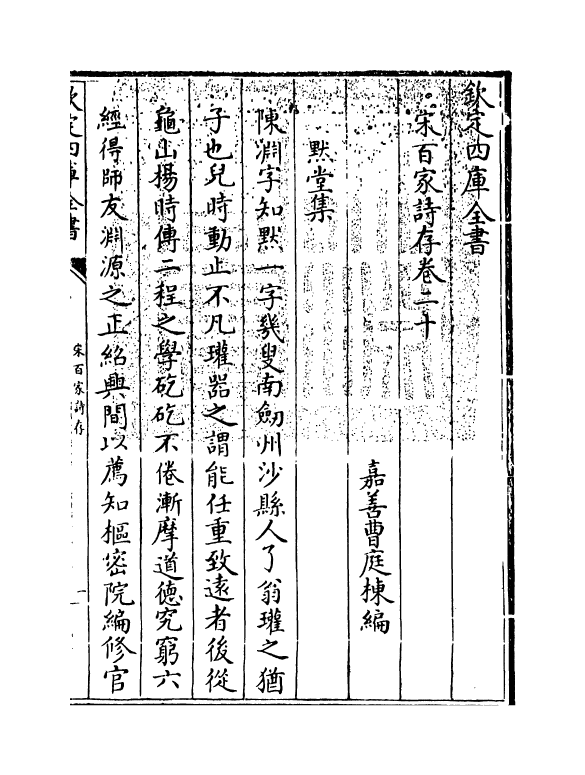 欽定四庫全書
宋百家詩存卷二十
嘉善曹庭棟編
默堂集
陳淵字知默一字幾叟南劒州沙縣人了翁瓘之猶
子也兒時動止不凡瓘器之謂能任重致遠者後從
龜山楊時傳二程之學矻矻不倦漸摩道德究窮六
經得師友淵源之正紹興間以薦知樞密院編修官
欽定四庫全書
宋百家詩存
一